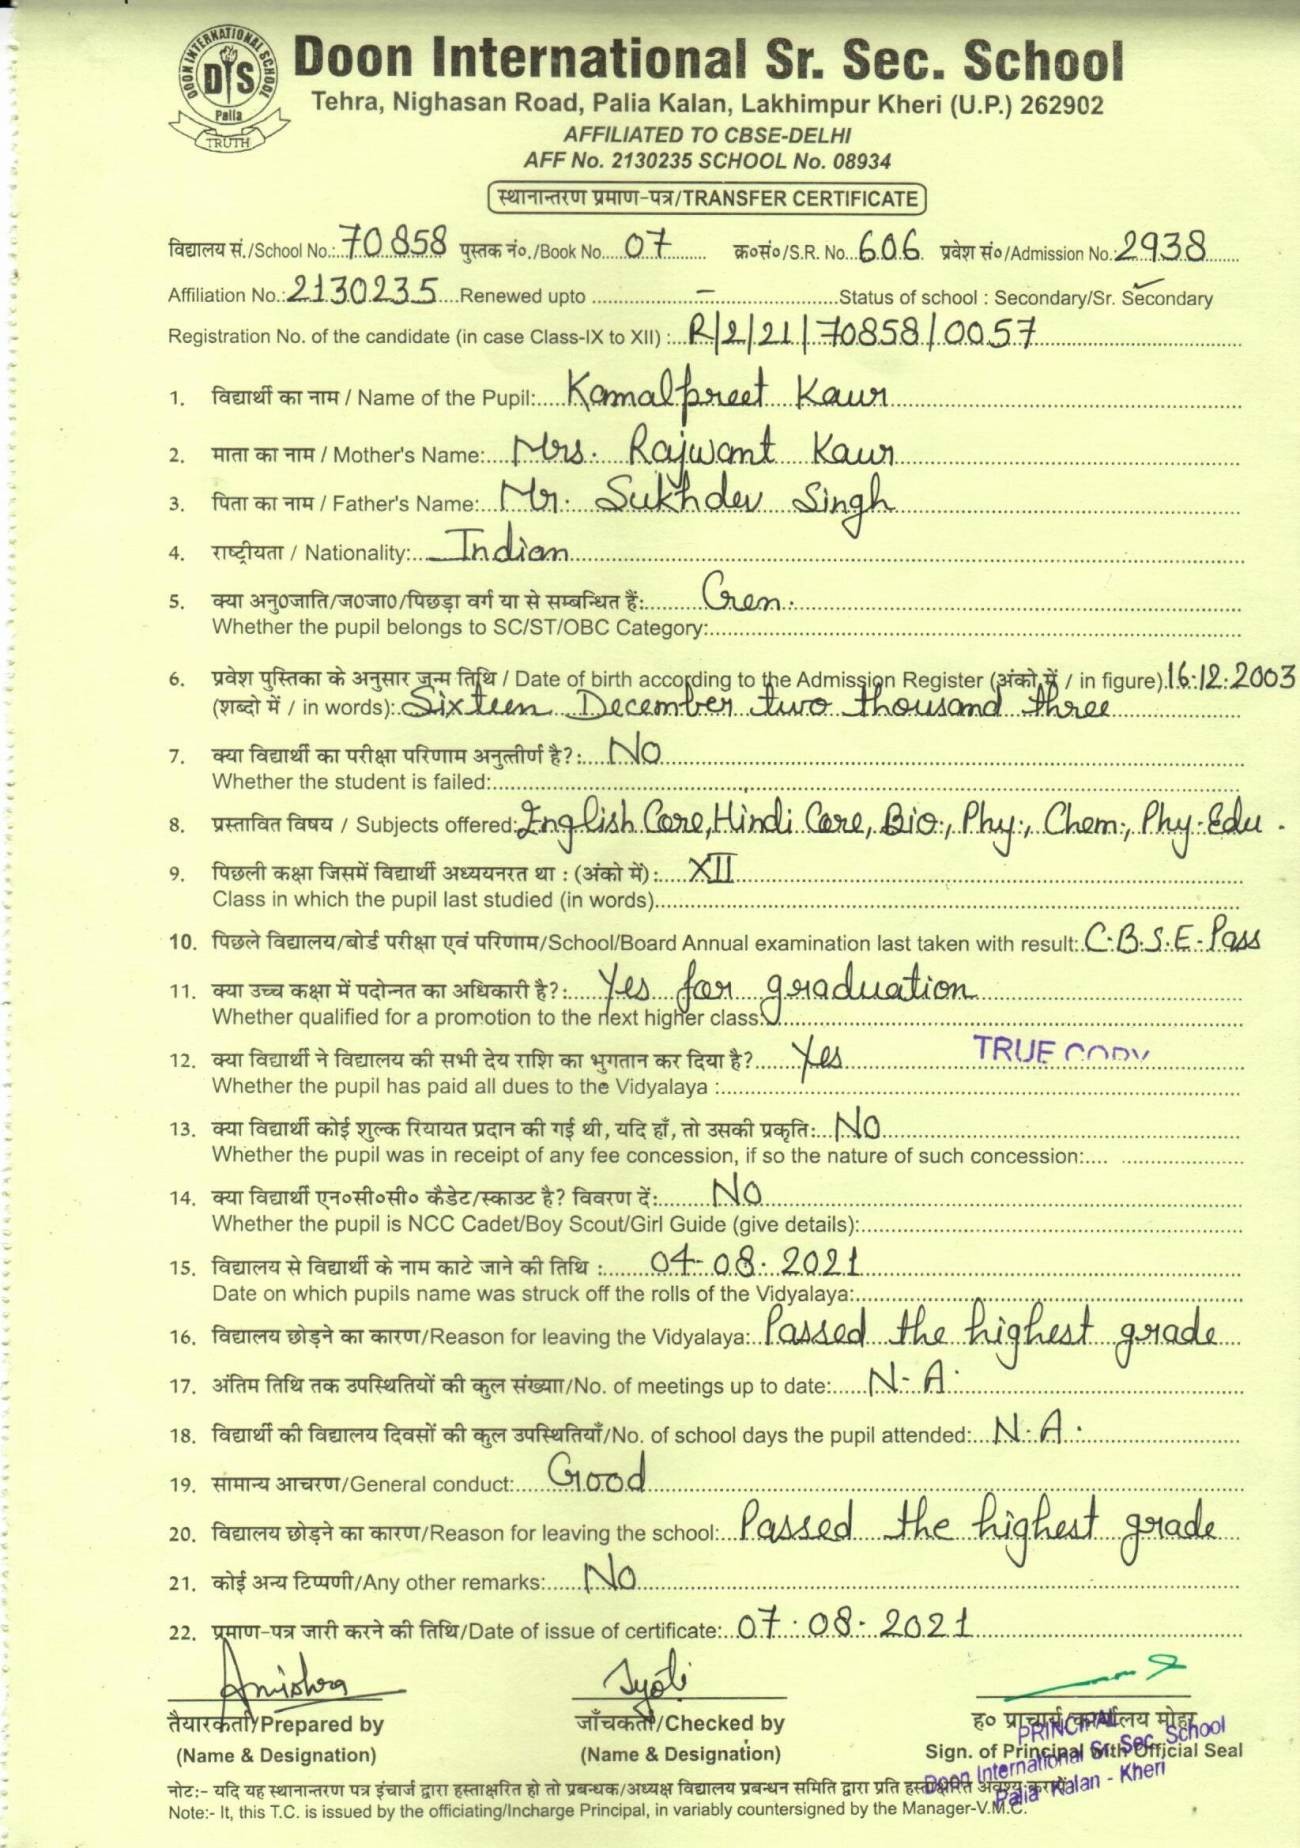 DOON INTERNATIONAL SCHOOL
DIS
Palia
TRUTH
Doon International Sr. Sec. School
Tehra, Nighasan Road, Palia Kalan, Lakhimpur Kheri (U.P.) 262902
AFFILIATED TO CBSE-DELHI
AFF No. 2130235 SCHOOL No. 08934
स्थानान्तरण प्रमाण-पत्र/TRANSFER CERTIFICATE
विद्यालय सं./School No.: 70858 पुस्तक नं०./Book No. 07 क्र०सं०/S.R. No. 606 प्रवेश सं०/Admission No.: 2938
Affiliation No.: 2130235 Renewed upto - Status of school : Secondary/Sr. Secondary
Registration No. of the candidate (in case Class-IX to XII) : R/2/21/70858/0057
1. विद्यार्थी का नाम / Name of the Pupil: Kamalpreet Kaur
2. माता का नाम / Mother's Name: Mrs. Rajwant Kaur
3. पिता का नाम / Father's Name: Mr. Sukhdev Singh
4. राष्ट्रीयता / Nationality: Indian
5. क्या अनु0जाति/ज0जा0/पिछड़ा वर्ग या से सम्बन्धित हैं: Gen.
Whether the pupil belongs to SC/ST/OBC Category:
6. प्रवेश पुस्तिका के अनुसार जन्म तिथि / Date of birth according to the Admission Register (अंको में / in figure) 16.12.2003
(शब्दो में / in words): Sixteen December two thousand three
7. क्या विद्यार्थी का परीक्षा परिणाम अनुत्तीर्ण है?: No
Whether the student is failed:
8. प्रस्तावित विषय / Subjects offered: English Core, Hindi Core, Bio., Phy., Chem., Phy. Edu.
9. पिछली कक्षा जिसमें विद्यार्थी अध्ययनरत था : (अंको में): XII
Class in which the pupil last studied (in words)
10. पिछले विद्यालय/बोर्ड परीक्षा एवं परिणाम/School/Board Annual examination last taken with result: C.B.S.E. Pass
11. क्या उच्च कक्षा में पदोन्नत का अधिकारी है?: Yes for graduation
Whether qualified for a promotion to the next higher class:
12. क्या विद्यार्थी ने विद्यालय की सभी देय राशि का भुगतान कर दिया है? Yes TRUE COPY
Whether the pupil has paid all dues to the Vidyalaya :
13. क्या विद्यार्थी कोई शुल्क रियायत प्रदान की गई थी, यदि हाँ, तो उसकी प्रकृति: No
Whether the pupil was in receipt of any fee concession, if so the nature of such concession:
14. क्या विद्यार्थी एन०सी०सी० कैडेट/स्काउट है? विवरण दें: No
Whether the pupil is NCC Cadet/Boy Scout/Girl Guide (give details):
15. विद्यालय से विद्यार्थी के नाम काटे जाने की तिथि : 04-08.2021
Date on which pupils name was struck off the rolls of the Vidyalaya:
16. विद्यालय छोड़ने का कारण/Reason for leaving the Vidyalaya: Passed the highest grade
17. अंतिम तिथि तक उपस्थितियों की कुल संख्या/No. of meetings up to date: N.A.
18. विद्यार्थी की विद्यालय दिवसों की कुल उपस्थितियाँ/No. of school days the pupil attended: N.A.
19. सामान्य आचरण/General conduct: Good
20. विद्यालय छोड़ने का कारण/Reason for leaving the school: Passed the highest grade
21. कोई अन्य टिप्पणी/Any other remarks: No
22. प्रमाण-पत्र जारी करने की तिथि/Date of issue of certificate: 07.08.2021
Jyoti
तैयारकर्ता/Prepared by जाँचकर्ता/Checked by ह० प्राचार्य/कार्यालय मोहर
(Name & Designation) (Name & Designation) Sign. of Principal with Official Seal
PRINCIPAL
Doon International Sr. Sec. School
Palia Kalan - Kheri
नोट:- यदि यह स्थानान्तरण पत्र इंचार्ज द्वारा हस्ताक्षरित हो तो प्रबन्धक/अध्यक्ष विद्यालय प्रबन्धन समिति द्वारा प्रति हस्ताक्षरित अवश्य करायें
Note:- It, this T.C. is issued by the officiating/Incharge Principal, in variably countersigned by the Manager-V.M.C.